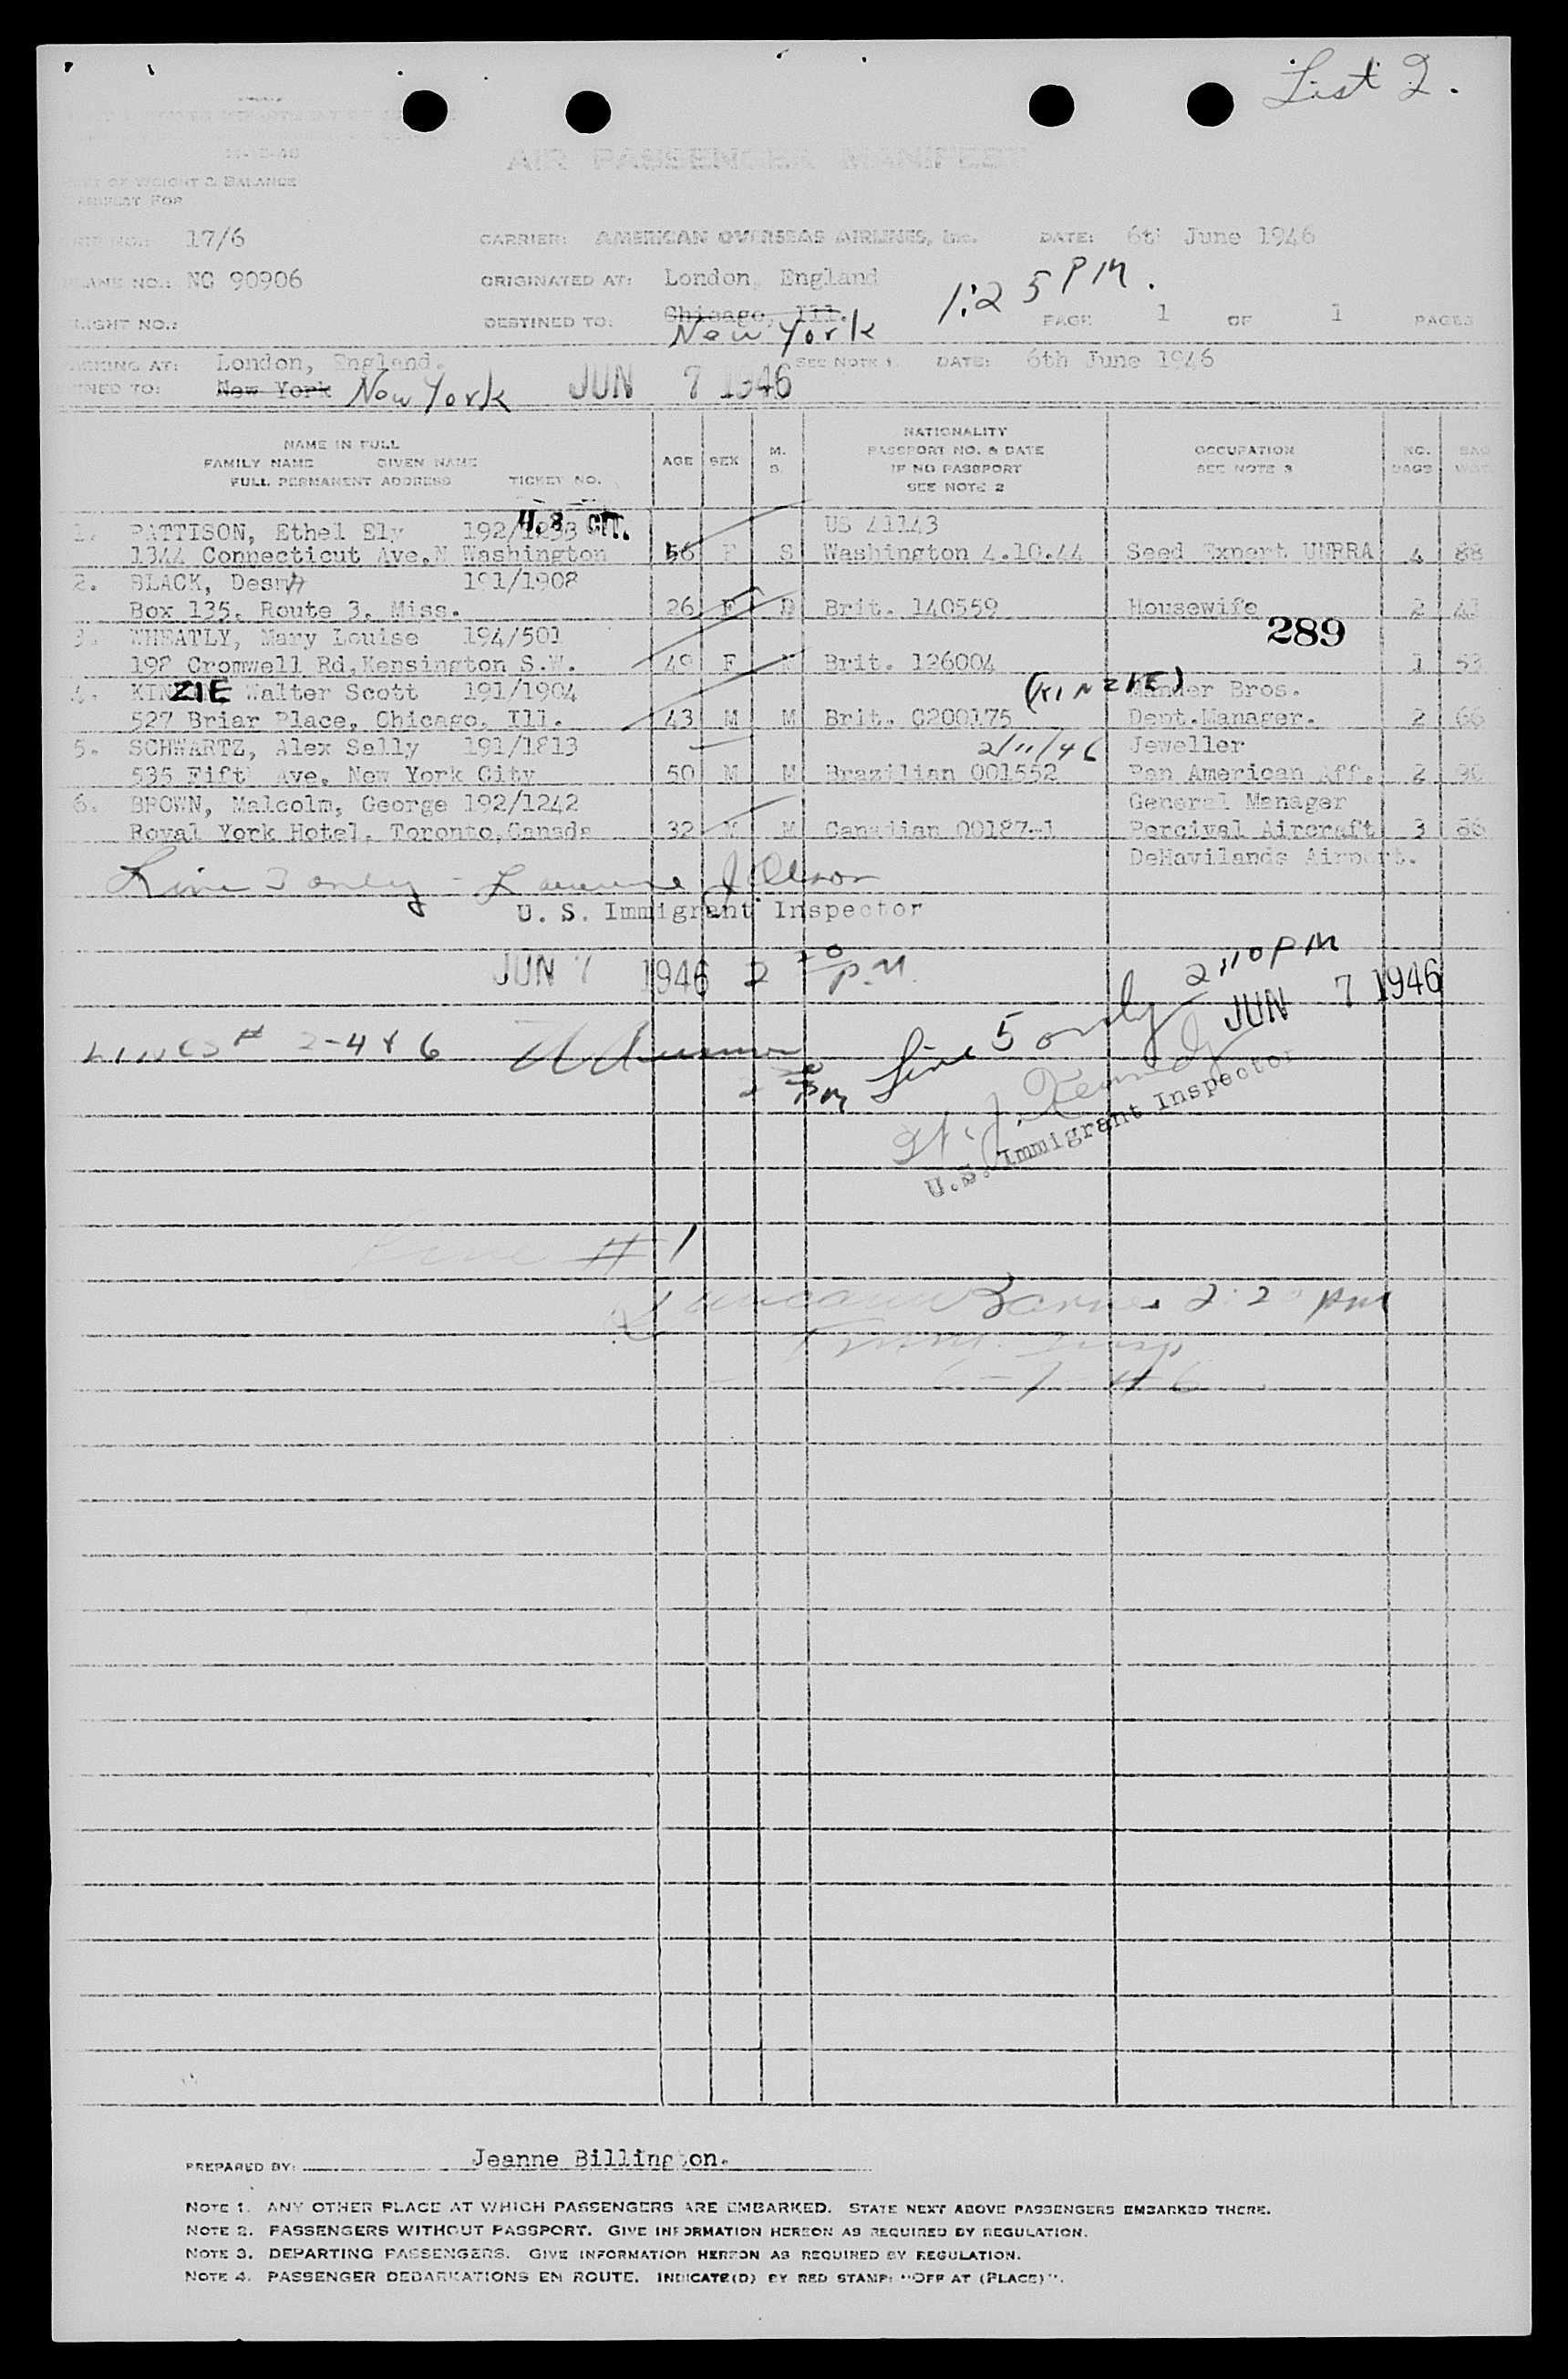 List 2.
AIR PASSENGER MANIFEST
OF WEIGHT & BALANCE
FOR
17/6
CARRIER: AMERICAN OVERSEAS AIRLINES, Inc.
DATE: 6th June 1946
NO.: NC 90906
ORIGINATED AT: London, England
1:25 PM.
NO.:
DESTINED TO: Chicago, Ill.
New York
PAGE 1 OF 1 PAGES
AT: London, England.
SEE NOTE 1.
DATE: 6th June 1946
TO: New York New York
JUN 7 1946
NAME IN FULL
FAMILY NAME GIVEN NAME
FULL PERMANENT ADDRESS TICKET NO.
AGE
SEX
M.
S.
NATIONALITY
PASSPORT NO. & DATE
IF NO PASSPORT
SEE NOTE 2
OCCUPATION
SEE NOTE 3
NO.
BAGS
U.S. CIT.
1. PATTISON, Ethel Ely 192/1233 US 41143
1344 Connecticut Ave.N Washington 56 F S Washington 4.10.44 Seed Expert UNRRA 4 88
2. BLACK, Desma 191/1908
Box 135, Route 3, Miss. 26 F D Brit. 140559 Housewife 2 41
289
3. WHEATLY, Mary Louise 194/501
198 Cromwell Rd,Kensington S.W. 49 F M Brit. 126004 1 53
4. KINZIE Walter Scott 191/1904 (KINZIE) Mander Bros.
527 Briar Place, Chicago, Ill. 43 M M Brit. C200175 Dept.Manager. 2 66
5. SCHWARTZ, Alex Sally 191/1813 2/11/46 Jeweller
535 Fifth Ave, New York City 50 M M Brazilian 001552 Pan American Aff. 2 90
6. BROWN, Malcolm, George 192/1242 General Manager
Royal York Hotel, Toronto,Canada 32 M M Canadian 00187-1 Percival Aircraft 3 86
DeHavilands Airport.
Line 3 only -
U. S. Immigrant Inspector
JUN 7 1946 2 20 P.M.
2:10 PM
JUN 7 1946
LINES # 2-4 & 6
2 20 PM
Line 5 only
W. J. Kennedy
U.S. Immigrant Inspector
Line #1
Barnes 2:20 pm
Imm. Insp
6-7-46
PREPARED BY: Jeanne Billington.
NOTE 1. ANY OTHER PLACE AT WHICH PASSENGERS ARE EMBARKED. STATE NEXT ABOVE PASSENGERS EMBARKED THERE.
NOTE 2. PASSENGERS WITHOUT PASSPORT. GIVE INFORMATION HEREON AS REQUIRED BY REGULATION.
NOTE 3. DEPARTING PASSENGERS. GIVE INFORMATION HEREON AS REQUIRED BY REGULATION.
NOTE 4. PASSENGER DEBARKATIONS EN ROUTE. INDICATE(D) BY RED STAMP: "OFF AT (PLACE)".